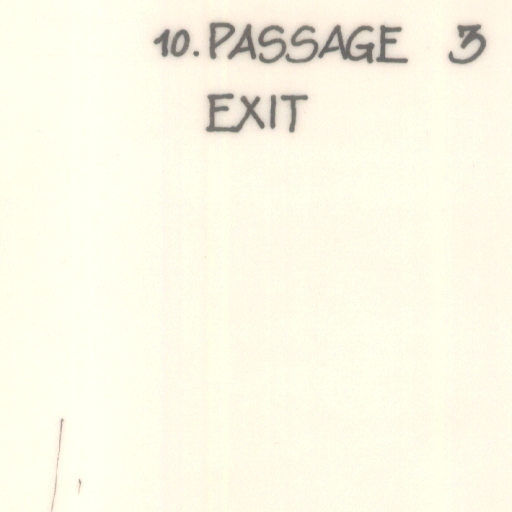 10. PASSAGE 3
EXIT